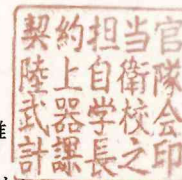 契約担当官
陸上自衛隊
武器学校会
計課長之印